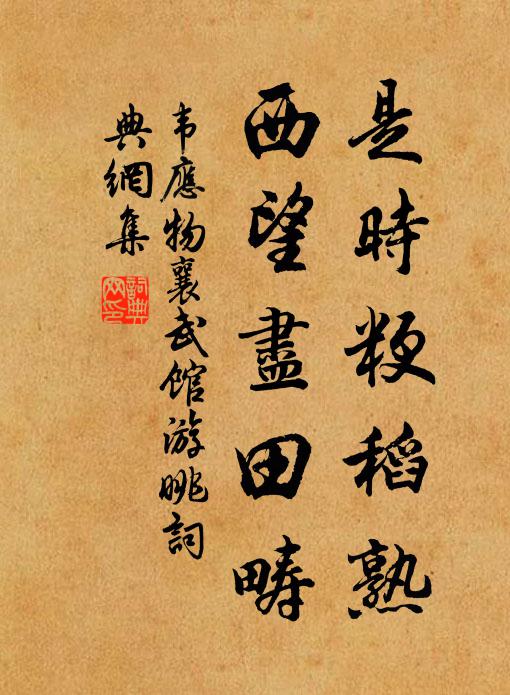 是時粳稻熟
西望盡田疇
韦應物襄武館游眺詞
典網集
詞典网印